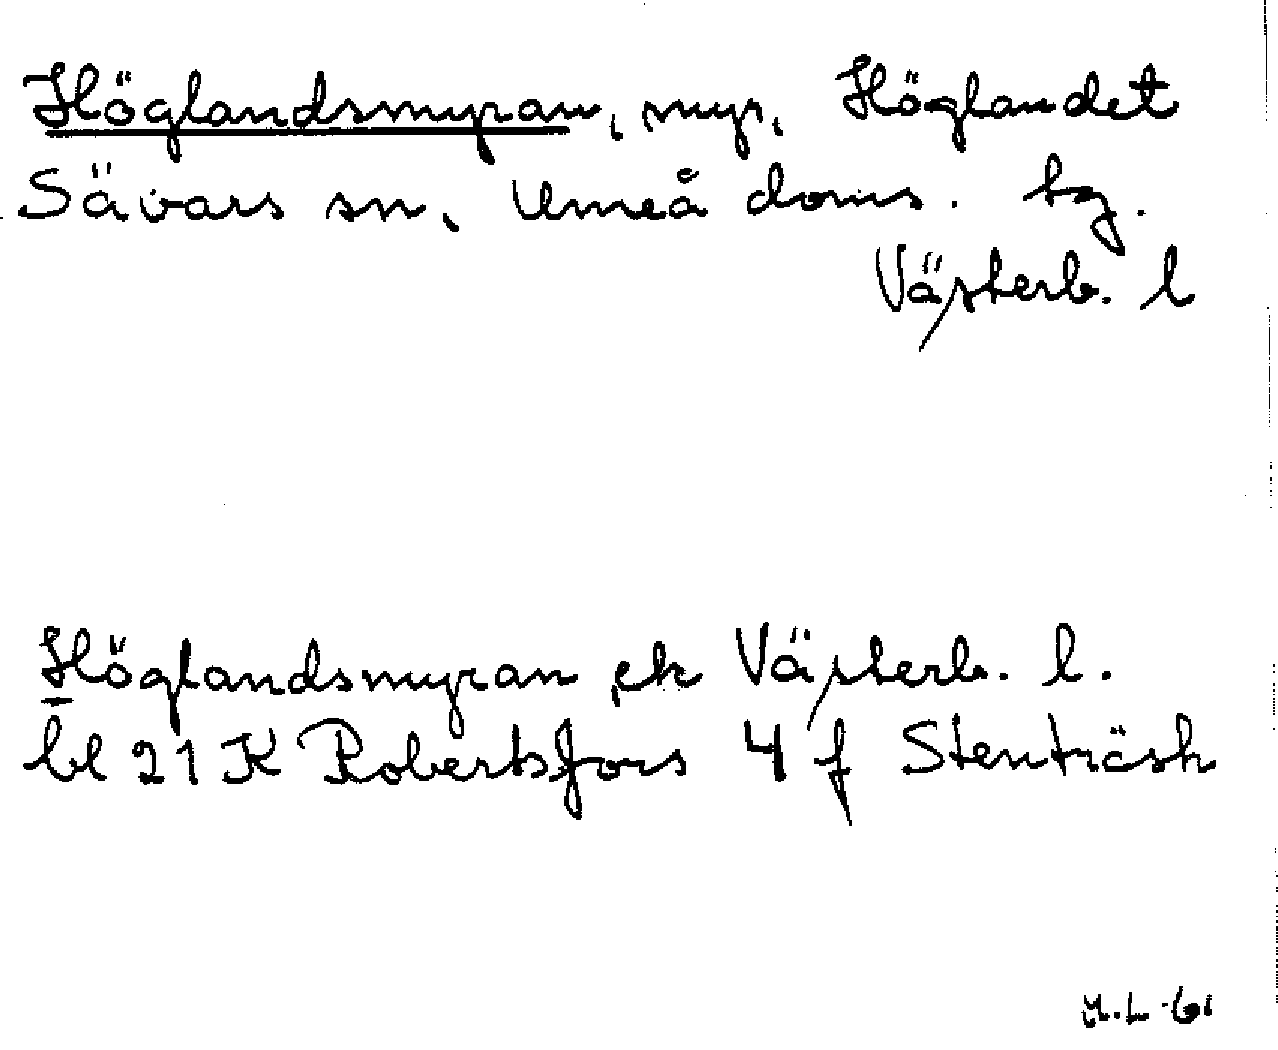 Höglandsmyran, myr, Höglandet
Sävars sn, Umeå doms. tg.
Västerb. l
Höglandsmyran, ek Västerb. l.
bl 21 K Robertsfors 4 f Stenträsk